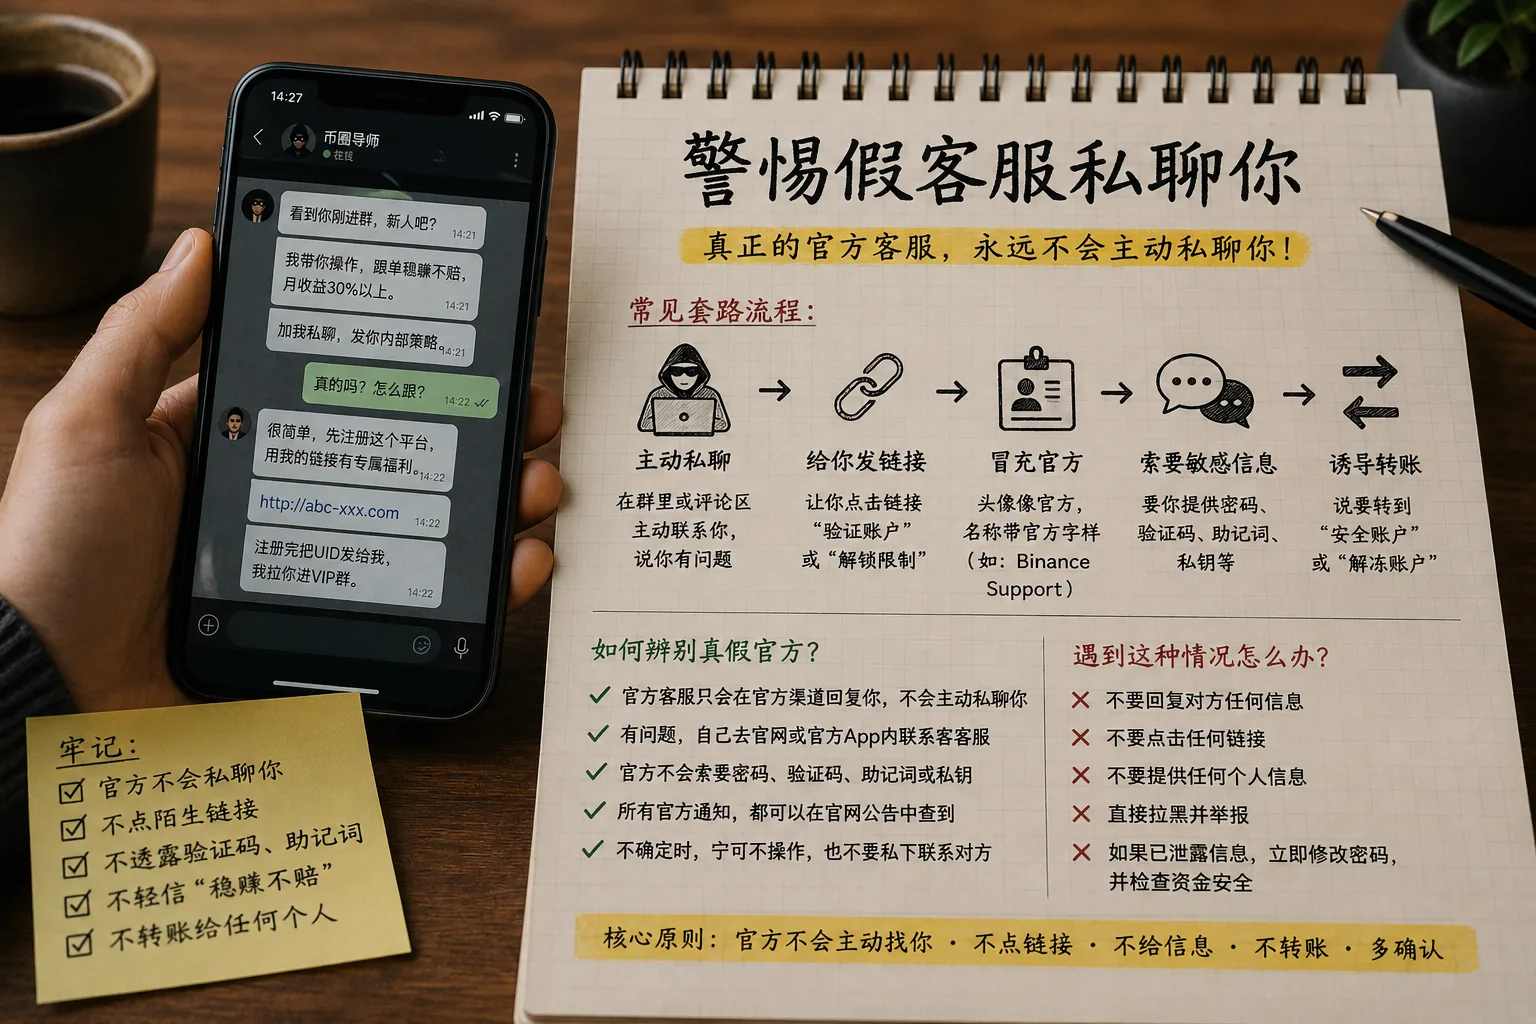 14:27
币圈导师
在线
看到你刚进群，新人吧？
14:21
我带你操作，跟单稳赚不赔，
月收益30%以上。
14:21
加我私聊，发你内部策略。
14:21
真的吗？怎么跟？
14:22
很简单，先注册这个平台，
用我的链接有专属福利。
14:22
http://abc-xxx.com
14:22
注册完把UID发给我，
我拉你进VIP群。
14:22
牢记：
官方不会私聊你
不点陌生链接
不透露验证码、助记词
不轻信“稳赚不赔”
不转账给任何个人
警惕假客服私聊你
真正的官方客服，永远不会主动私聊你！
常见套路流程：
主动私聊
在群里或评论区
主动联系你，
说你有问题
给你发链接
让你点击链接
“验证账户”
或“解锁限制”
冒充官方
头像像官方，
名称带官方字样
（如：Binance
Support）
索要敏感信息
要你提供密码、
验证码、助记词、
私钥等
诱导转账
说要转到
“安全账户”
或“解冻账户”
如何辨别真假官方？
官方客服只会在官方渠道回复你，不会主动私聊你
有问题，自己去官网或官方App内联系客客服
官方不会索要密码、验证码、助记词或私钥
所有官方通知，都可以在官网公告中查到
不确定时，宁可不操作，也不要私下联系对方
遇到这种情况怎么办？
不要回复对方任何信息
不要点击任何链接
不要提供任何个人信息
直接拉黑并举报
如果已泄露信息，立即修改密码，
并检查资金安全
核心原则：官方不会主动找你 · 不点链接 · 不给信息 · 不转账 · 多确认